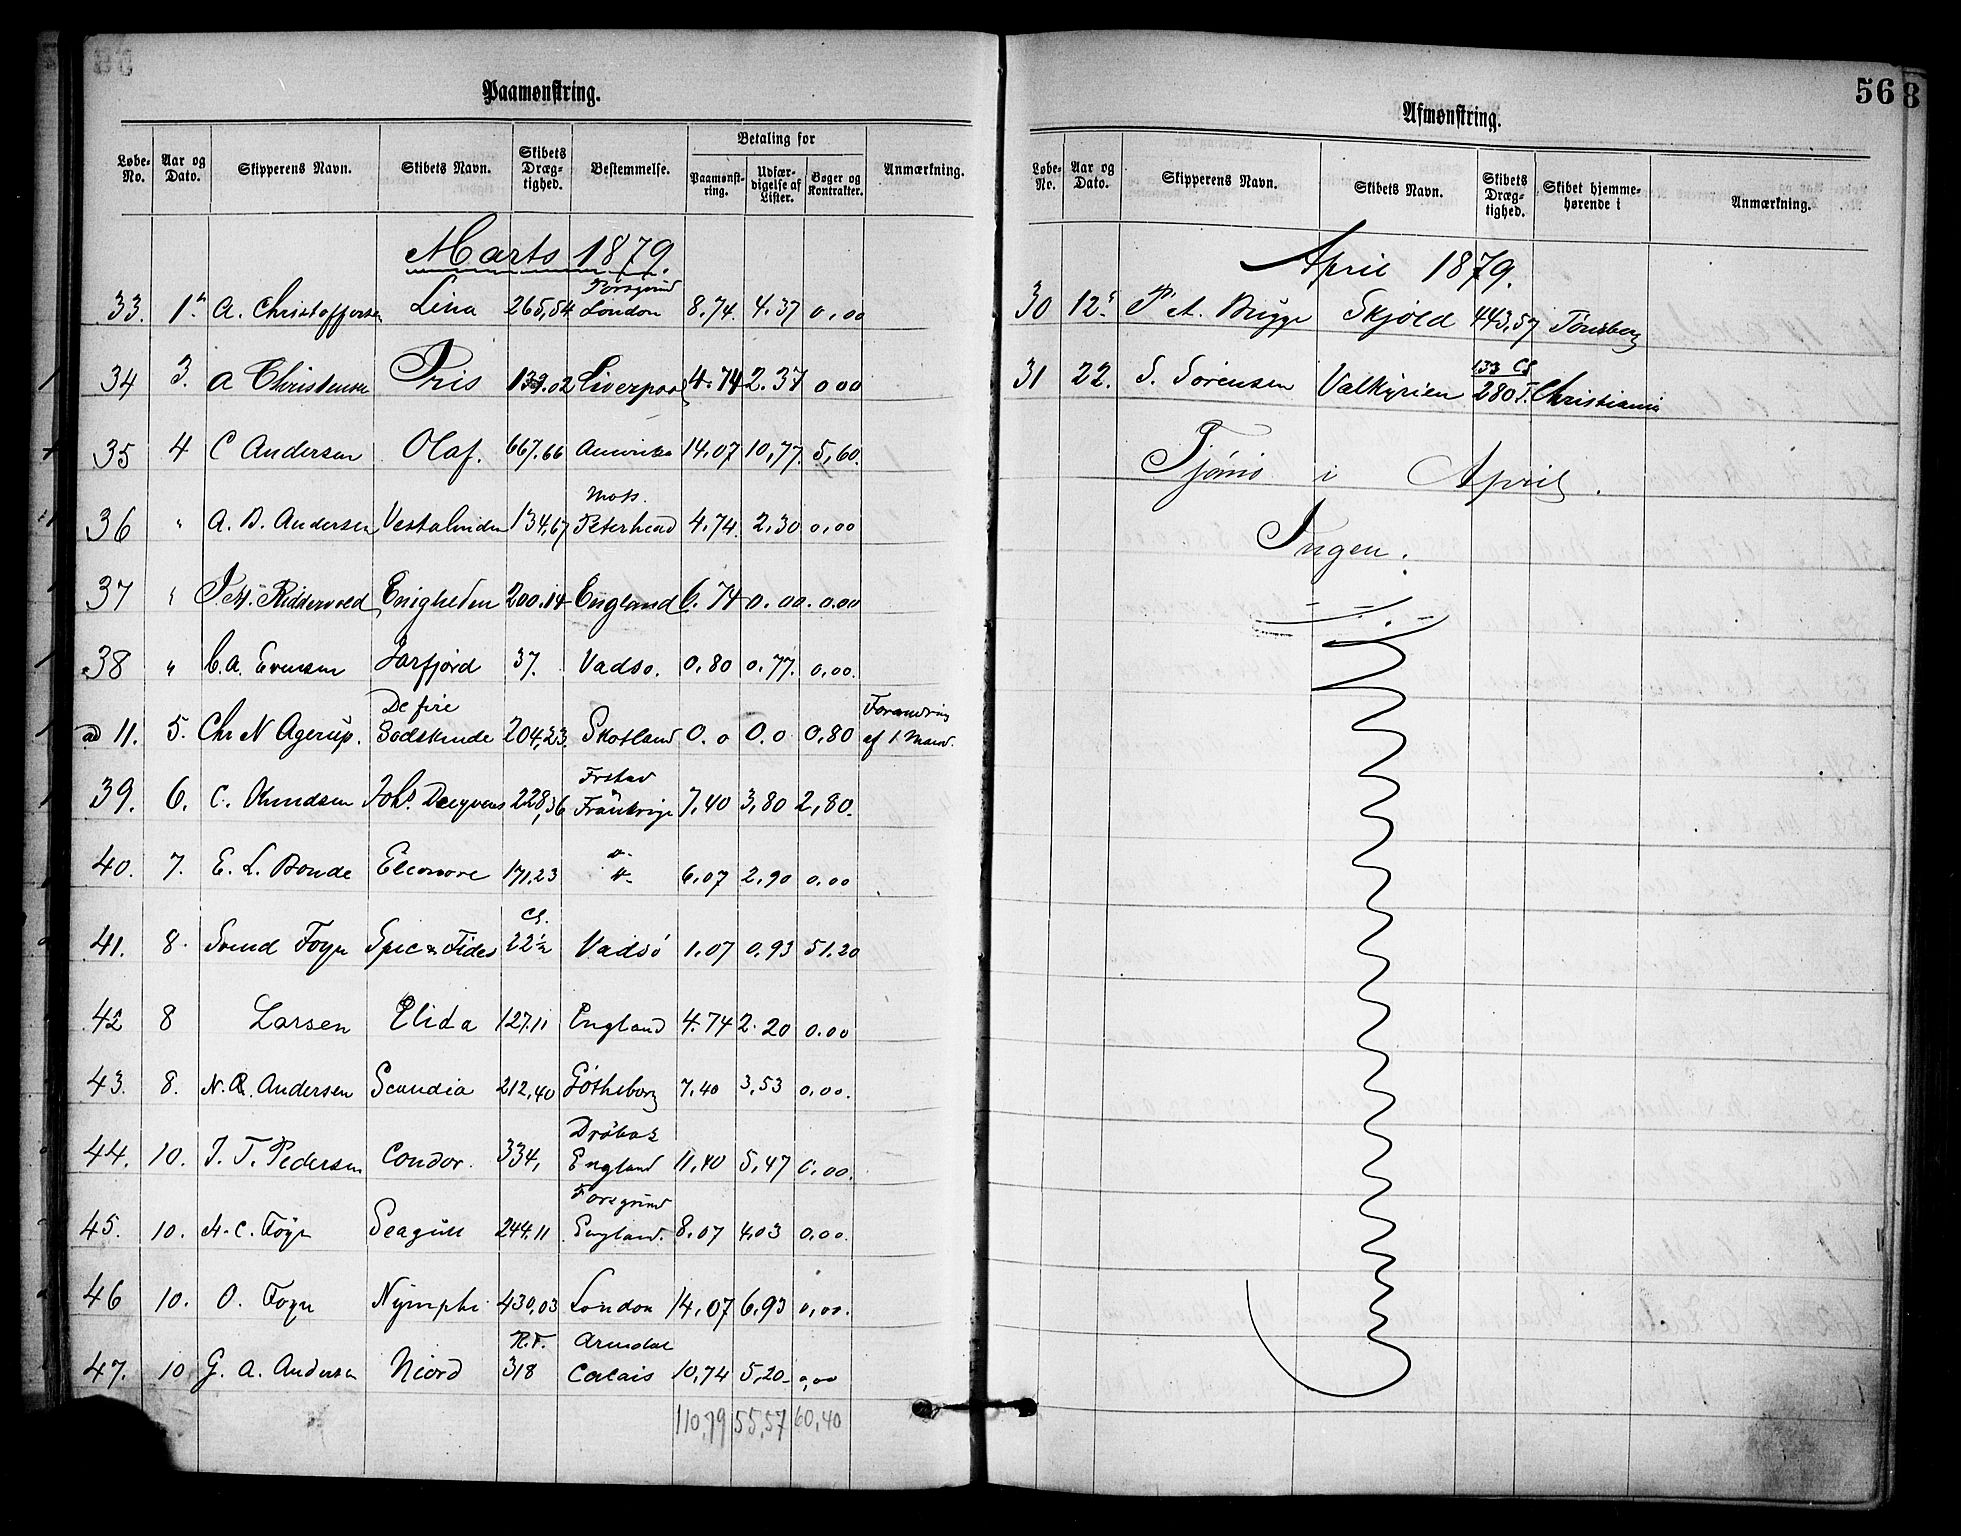 Paamønstring.
Løbe-No. Aar og Dato. Skipperens Navn. Skibets Navn. Skibets Dræg-tighed. Bestemmelse. Betaling for Paamønst-ring. Udfær-digelse af Lister. Bøger og Kontrakter. Anmærkning.
Marts 1879.
Porsgrund
33. 1ste A. Christoffersen Lina 265,54 London 8,74. 4.37 0,00
34 3. A Christensen Iris 139.02 Liverpool 4.74 2.37 0 00
35 4 C Andersen Olaf. 667.66 Amerika 14,07 10,77. 5,60.
Moss.
36 " A. B. Andersen Vestalinden 134,67 Peterhead 4,74. 2,30 0,00
37 " Riddervold Enigheden 200.14 England 6.74 0.00. 0.00
38 " C. A. Evensen Jarfjord 37. Vadsø. 0,80 0,77. 0,00.
De fire Forandring
ad 11. 5. Chr N Agerup. Sødskende 204,23. Skotland 0.0 0.0 0,80 af 1 Mand.
Frstad
39. 6. C. Knudsen Johs. 228,36 Frankrige 7,40 3,80 2,80.
40. 7. E. L. Bonde Eleonore 171,23 6,07 2,90 0,00
Cl.
41. 8. Svend Foyn Spes & Fides 22½ Vadsö 1,07 0,93 51,20
42 8 Larsen Elida 127.11 England 4.74 2.20 0.00
43. 8. N. R. Andersen Scandia 212,40 Götheborg 7,40 3,53 0,00.
Dröbak
44. 10. J. T. Pedersen Condor. 334, England 11,40 5,47 0,00.
Porsgrund
45. 10. N. C. Föyn Seagull 244.11 England. 8,07 4,03 0,00.
46 10. O. Foyn Nymphe 430,03 London 14,07 6,93 0,00.
R.T. Arendal
47. 10 G. A. Andersen Niord 318 Calais 10,74 5,20 0,00
110,79 55,57 60,40
568
Afmønstring.
Løbe-No. Aar og Dato. Skipperens Navn. Skibets Navn. Skibets Dræg-tighed. Skibet hjemme-hørende i Anmærkning.
April 1879.
30 12te P A. Brügge Skjöld 443,57 Tønsberg
133 Cl
31 22. S. Sørensen Valkyrien 280 T. Christiania
Tjømø i April.
Ingen.